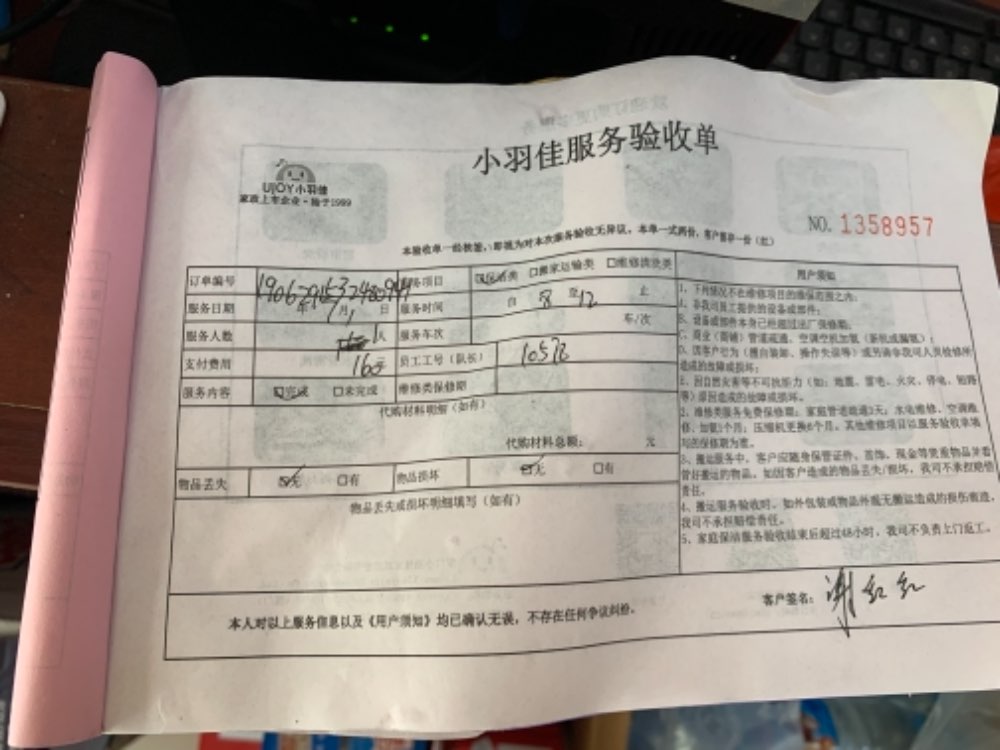 小羽佳服务验收单
UJOY小羽佳
家政上市企业·始于1999
NO. 1358957
本验收单一经核签,即视为对本次服务验收无异议。本单一式两份,客户留存一份(红)
订单编号 服务项目 保洁类 搬家运输类 维修清洗类
服务日期 年 7月 1 日 服务时间 自 8 至 12 止
服务人数 1人 服务车次 车/次
支付费用 员工工号(队长)
服务内容 完成 未完成 维修类保修期
代购材料明细(如有)
代购材料总额: 元
物品丢失 无 有 物品损坏 无 有
物品丢失或损坏明细填写(如有)
用户须知
1、下列情况不在维修项目的维保范围之内:
A、非我司员工提供的设备或部件;
B、设备或部件本身已经超过出厂保修期;
C、商业(商铺)管道疏通、空调空机加氨(新机或漏氨);
D、因客户行为(擅自装卸、操作失误等)或另请非我司人员检修所
造成的故障或损坏;
E、因自然灾害等不可抗拒力(如:地震、雷电、火灾、停电、短路
等)原因造成的故障或损坏。
2、维修类服务免费保修期:家庭管道疏通3天,水电维修、空调维
修、加氨1个月;压缩机更换6个月。其他维修项目以服务验收单填
写的保修期为准。
3、搬运服务中,客户应随身保管证件、首饰、现金等贵重物品并看
管好搬运的物品。如因客户造成的物品丢失/损坏,我司不承担赔偿
责任。
4、搬运服务验收时,如外包装或物品外观无搬运造成的损伤痕迹,
我司不承担赔偿责任。
5、家庭保洁服务验收结束后超过48小时,我司不负责上门返工。
本人对以上服务信息以及《用户须知》均已确认无误,不存在任何争议纠纷。
客户签名:谢红红